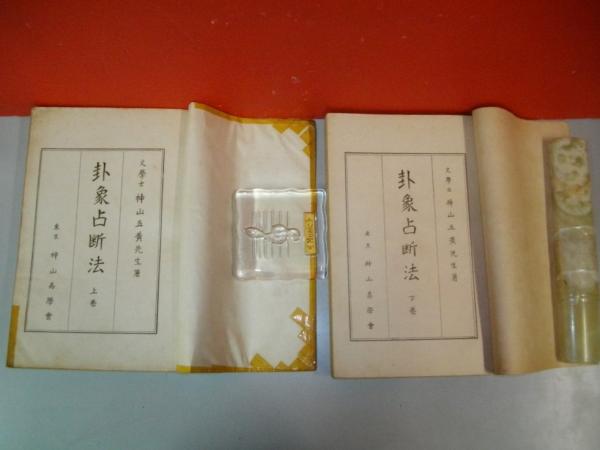 文學士 神山五黄先生著
卦象占断法 上巻
東京 神山易學會
文學士 神山五黄先生著
卦象占断法 下巻
東京 神山易學會